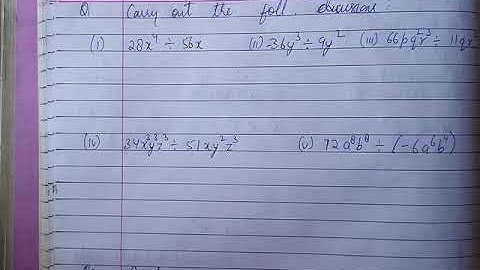 Q Carry out the foll. divisions:
(i) 28x⁴ ÷ 56x (ii) -36y³ ÷ 9y² (iii) 66pq²r³ ÷ 11qr²
(iv) 34x³y³z³ ÷ 51xy²z³ (v) 72a⁸b⁸ ÷ (-6a⁶b⁴)